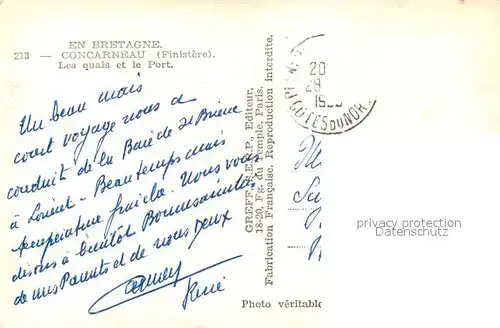 EN BRETAGNE.
213 — CONCARNEAU (Finistère).
Les quais et le Port.
Un beau mais
court voyage nous a
conduit de la Baie de St Brieuc
à Lorient - Beau temps mais
température fraîche. Nous vous
disons à bientôt
de mes Parents et de nous deux
René
GREFF, S.E.R.P., Editeur,
18-20, Fg. du Temple, Paris.
Fabrication Française. Reproduction interdite.
Photo véritable
20
28
COTES DU NOR
privacy protection
Datenschutz